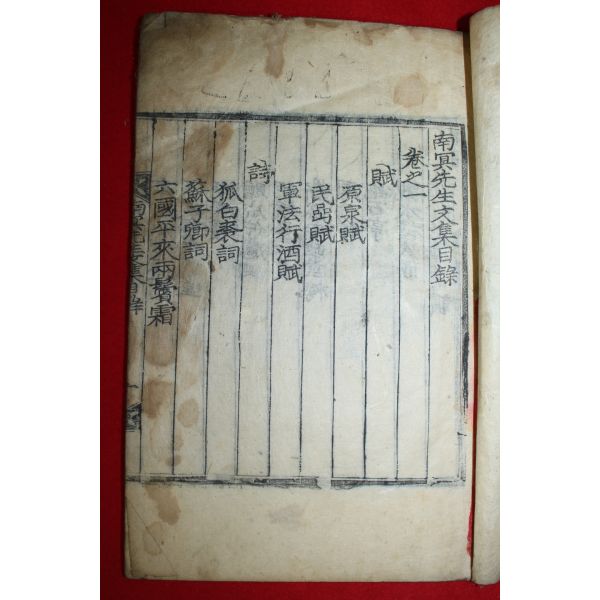 南冥先生文集目錄
卷之一
賦
原泉賦
民嵒賦
軍法行酒賦
詩
狐白裘詞
蘇子卿詞
六國平來兩鬢霜
南冥先生集目錄